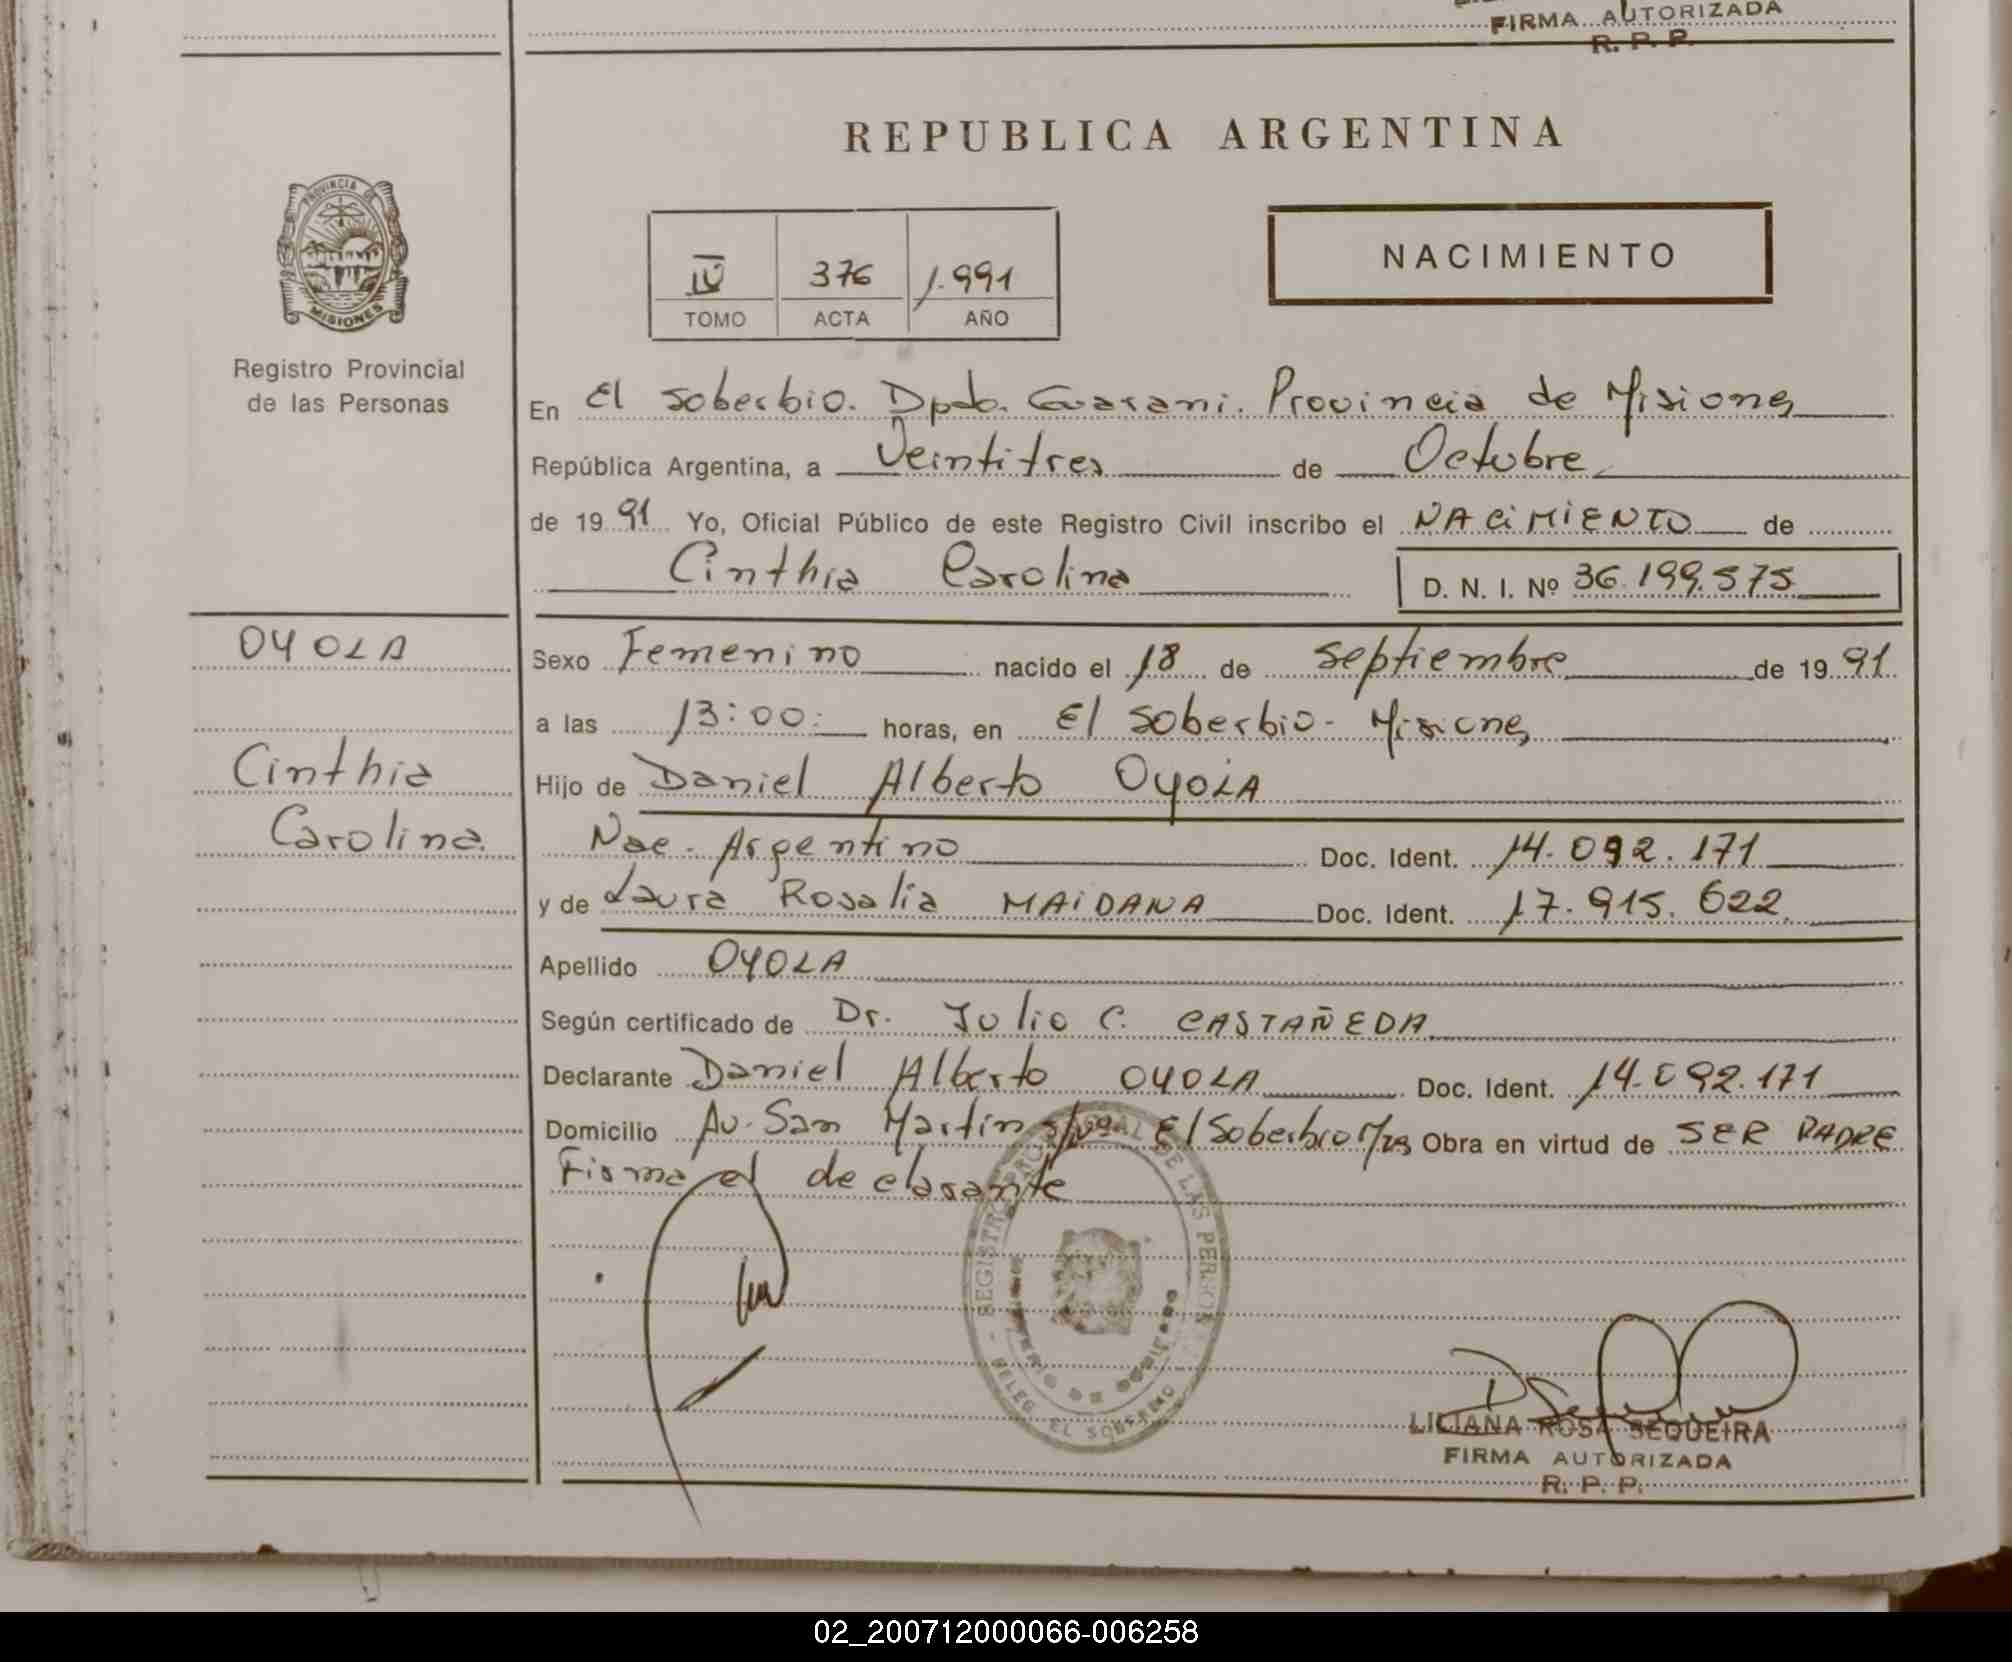 FIRMA AUTORIZADA
R. P. P.
REPUBLICA ARGENTINA
PROVINCIA DE
MISIONES
Registro Provincial
de las Personas
IV 376 1.991
TOMO ACTA AÑO
NACIMIENTO
En El Soberbio. Dpdo. Guarani. Provincia de Misiones
República Argentina, a Veintitres de Octubre
de 1991 Yo, Oficial Público de este Registro Civil inscribo el NACIMIENTO de
Cinthia Carolina D. N. I. Nº 36.199.575
OYOLA
Cinthia
Carolina
Sexo Femenino nacido el 18 de Septiembre de 1991
a las 13:00 horas, en El Soberbio - Misiones
Hijo de Daniel Alberto OYOLA
Nac. Argentino Doc. Ident. 14.092.171
y de Laura Rosalia MAIDANA Doc. Ident. 17.915.622
Apellido OYOLA
Según certificado de Dr. Julio C. CASTAÑEDA
Declarante Daniel Alberto OYOLA Doc. Ident. 14.092.171
Domicilio Av. San Martin El Soberbio Obra en virtud de SER PADRE
Firma el declarante
REGISTRO PROVINCIAL DE LAS PERSONAS
DELEG. EL SOBERBIO
MINISTERIO DE GOBIERNO
LILIANA ROSA SEQUEIRA
FIRMA AUTORIZADA
R. P. P.
02_200712000066-006258